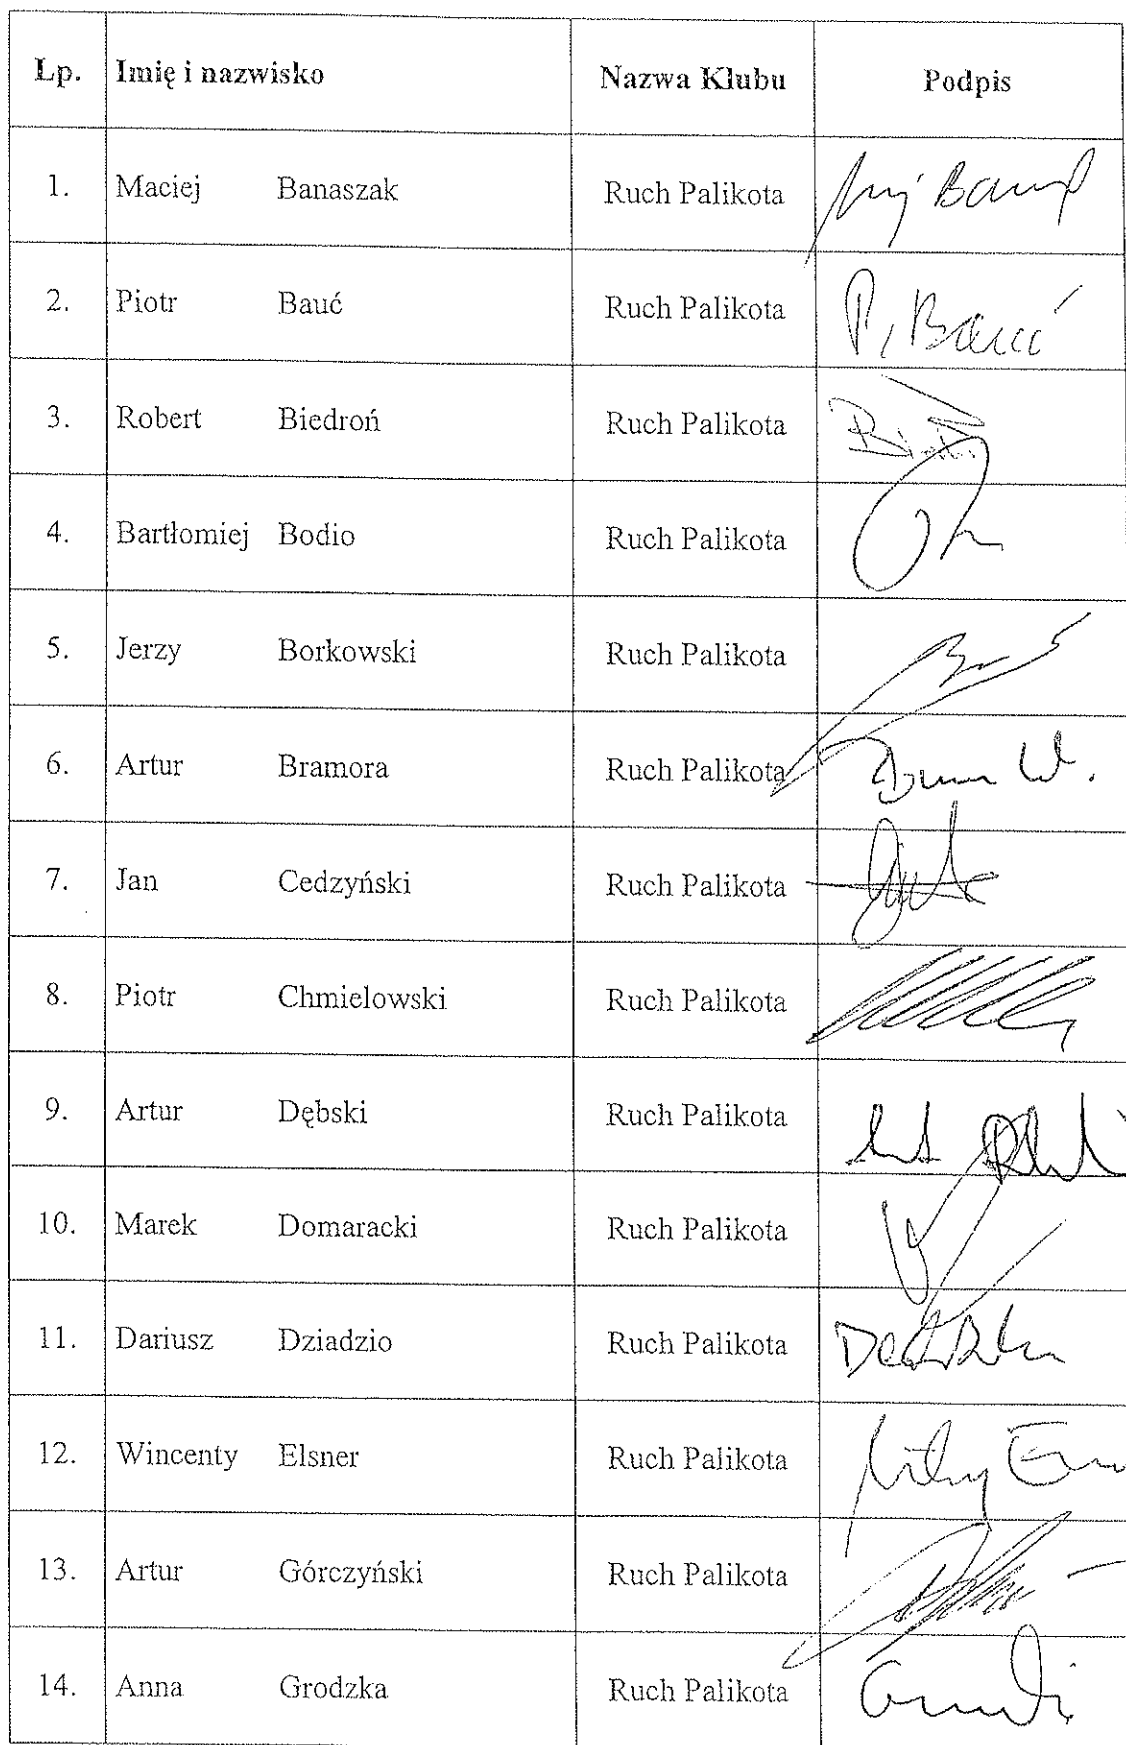 Lp. Imię i nazwisko Nazwa Klubu Podpis
1. Maciej Banaszak Ruch Palikota
2. Piotr Bauć Ruch Palikota P. Bauć
3. Robert Biedroń Ruch Palikota
4. Bartłomiej Bodio Ruch Palikota
5. Jerzy Borkowski Ruch Palikota
6. Artur Bramora Ruch Palikota
7. Jan Cedzyński Ruch Palikota
8. Piotr Chmielowski Ruch Palikota
9. Artur Dębski Ruch Palikota
10. Marek Domaracki Ruch Palikota
11. Dariusz Dziadzio Ruch Palikota
12. Wincenty Elsner Ruch Palikota
13. Artur Górczyński Ruch Palikota
14. Anna Grodzka Ruch Palikota